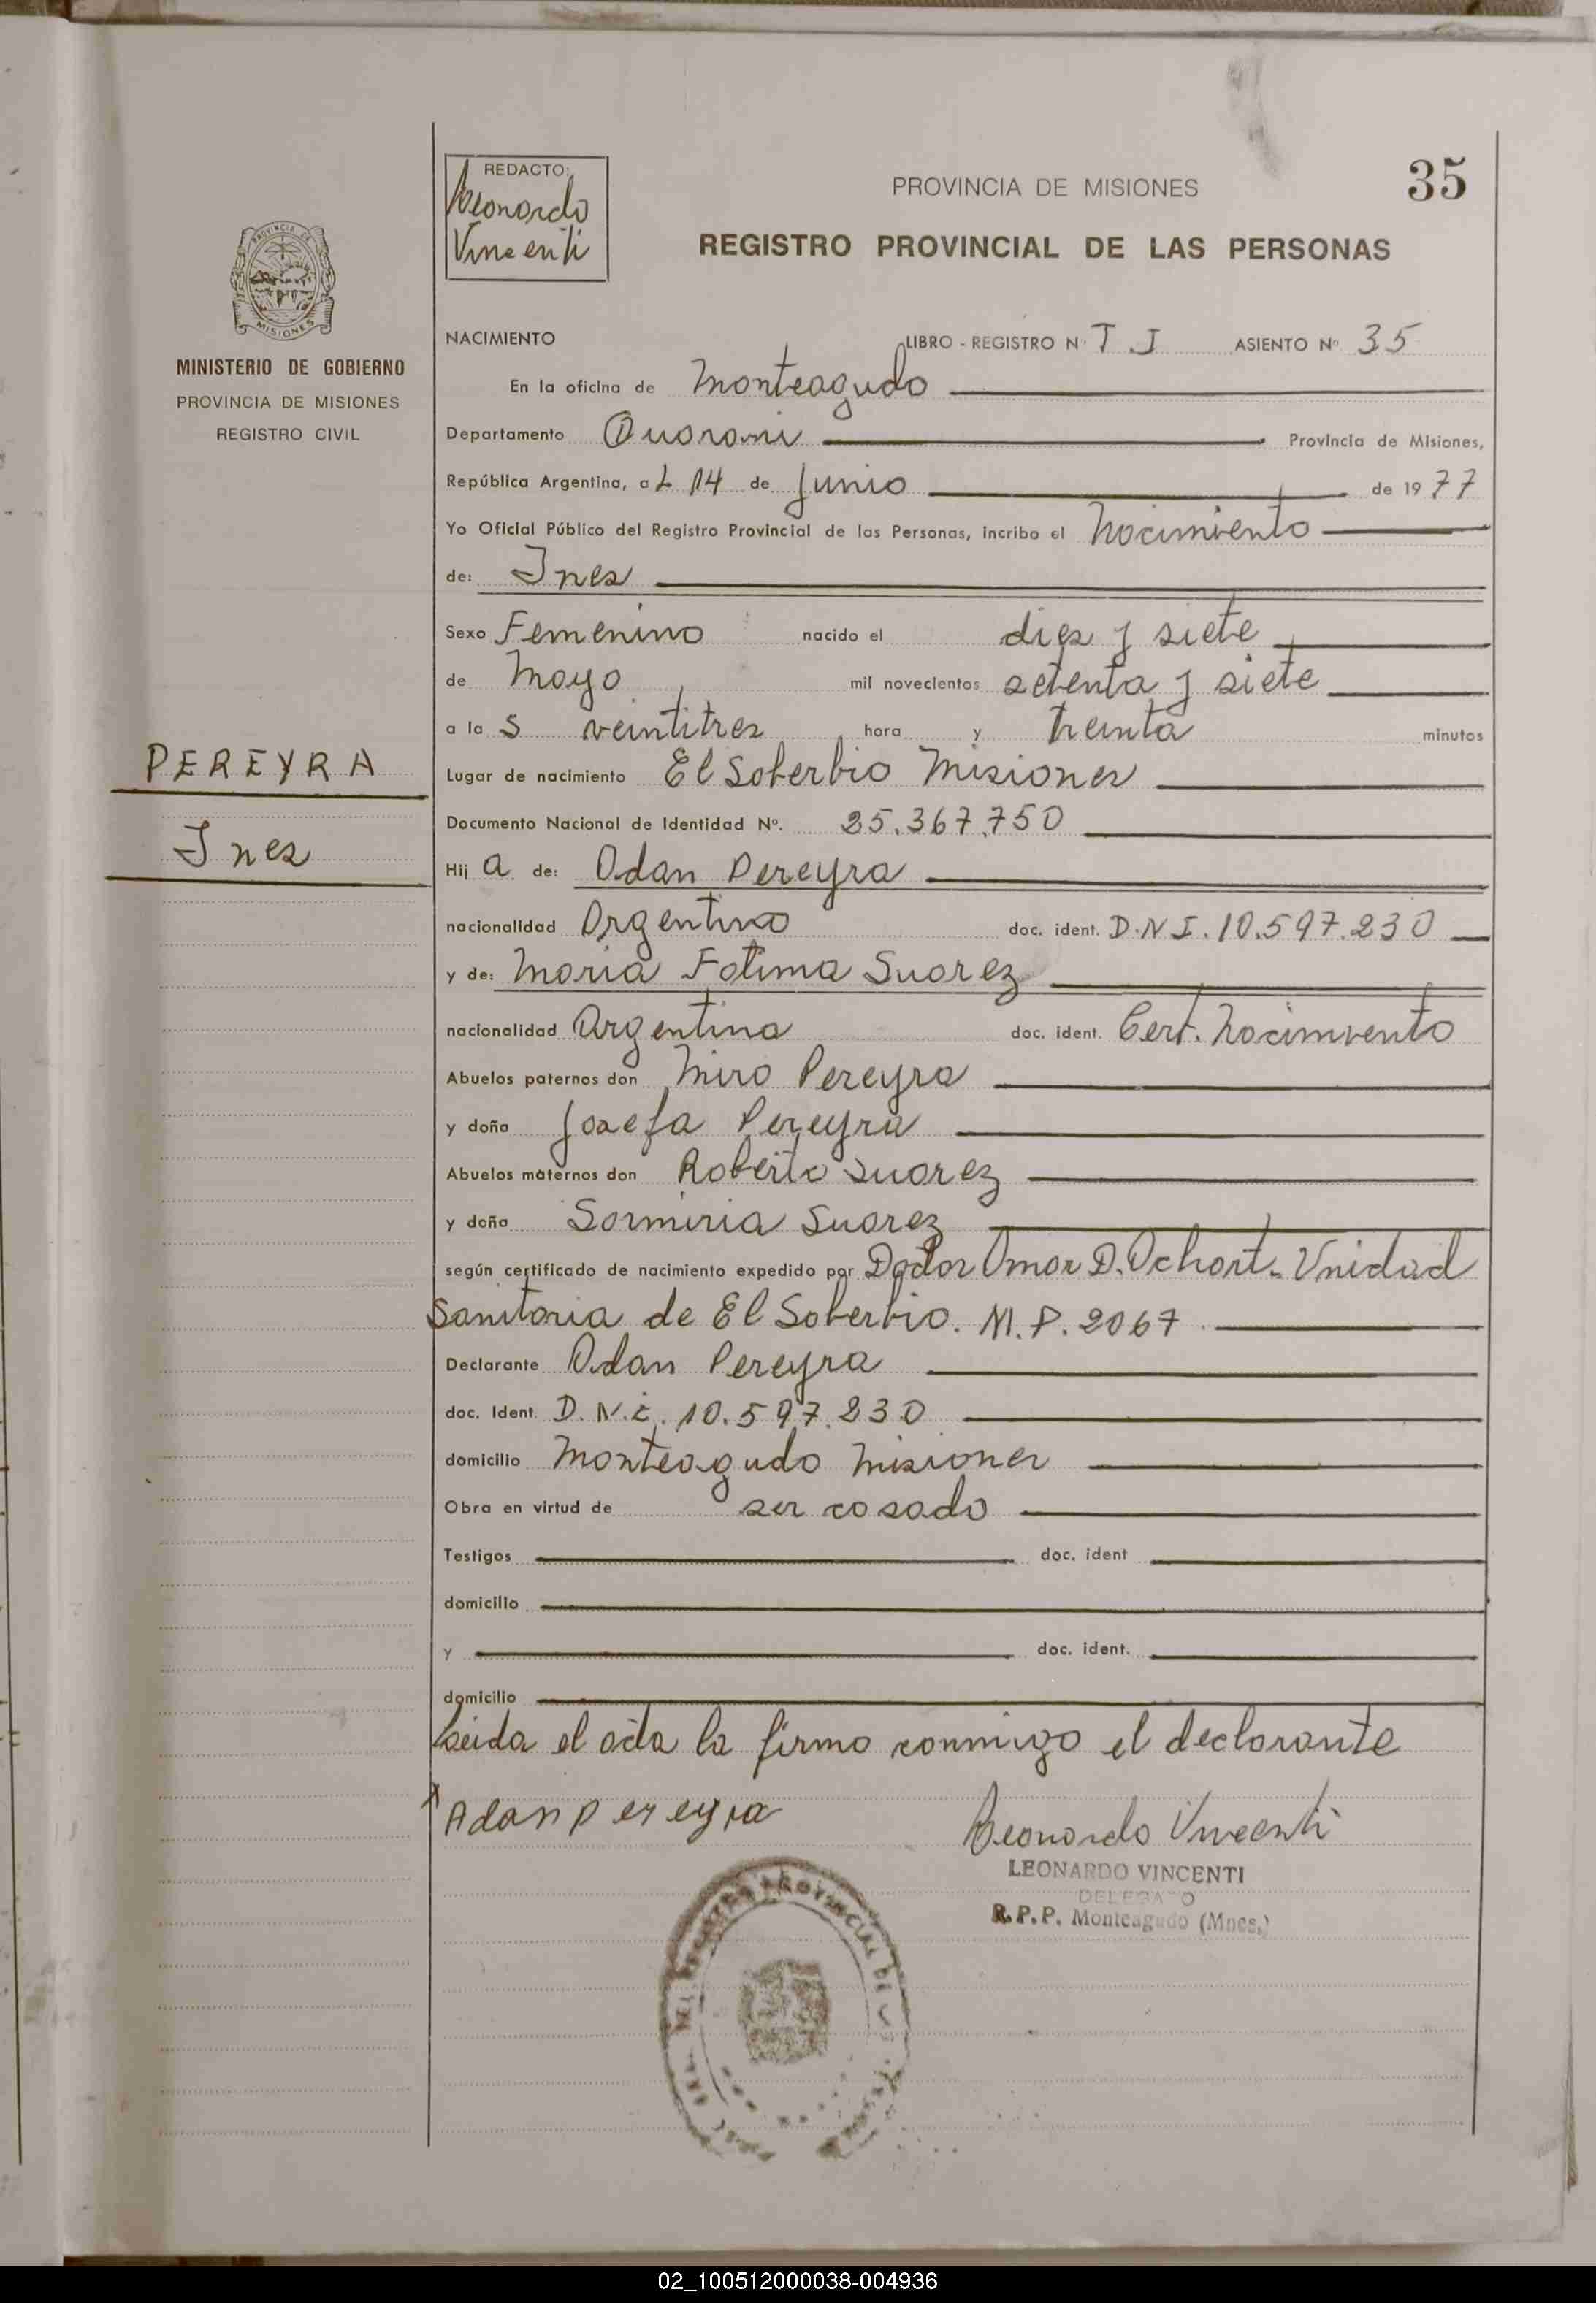 REDACTO:
Leonardo
Vincenti
PROVINCIA DE MISIONES
35
REGISTRO PROVINCIAL DE LAS PERSONAS
PROVINCIA DE
MISIONES
MINISTERIO DE GOBIERNO
PROVINCIA DE MISIONES
REGISTRO CIVIL
NACIMIENTO LIBRO - REGISTRO N. T J ASIENTO Nº 35
En la oficina de Monteagudo
Departamento Guarani Provincia de Misiones,
República Argentina, a L 14 de Junio de 19 77
Yo Oficial Público del Registro Provincial de las Personas, incribo el Nacimiento
de: Ines
Sexo Femenino nacido el diez y siete
de Mayo mil novecientos setenta y siete
a la s veintitres hora y treinta minutos
PEREYRA
Ines
Lugar de nacimiento El Soberbio Misiones
Documento Nacional de Identidad Nº. 25.367.750
Hij a de: Adan Pereyra
nacionalidad Argentino doc. ident. D.N.I. 10.597.230
y de: Maria Fatima Suarez
nacionalidad Argentina doc. ident. Cert. Nacimiento
Abuelos paternos don Miro Pereyra
y doña Josefa Pereyra
Abuelos maternos don Roberto Suarez
y doña Sarmiria Suarez
según certificado de nacimiento expedido por Doctor Omar D. Ochart. Unidad
Sanitaria de El Soberbio. M.P. 2067
Declarante Adan Pereyra
doc. Ident. D.N.i. 10.597.230
domicilio Monteagudo Misiones
Obra en virtud de ser casado
Testigos doc. ident
domicilio
y doc. ident.
domicilio
Leida el acta la firma conmigo el declarante
Adan Pereyra
Leonardo Vincenti
LEONARDO VINCENTI
DELEGADO
R.P.P. Monteagudo (Mnes.)
02_100512000038-004936